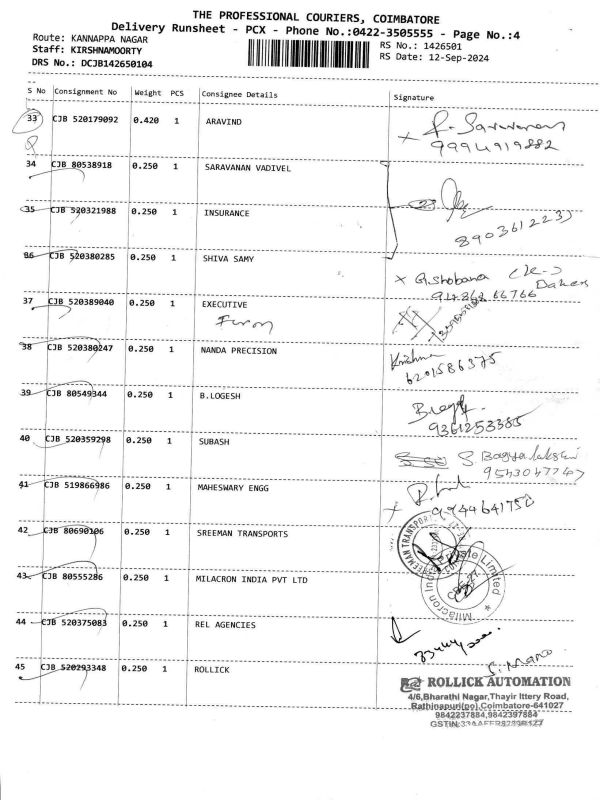 THE PROFESSIONAL COURIERS, COIMBATORE
Delivery Runsheet - PCX - Phone No.:0422-3505555 - Page No.:4
Route: KANNAPPA NAGAR
Staff: KIRSHNAMOORTY
DRS No.: DCJB142650104
RS No.: 1426501
RS Date: 12-Sep-2024
S No Consignment No Weight PCS Consignee Details Signature
33 CJB 520179092 0.420 1 ARAVIND
9994919882
34 CJB 80538918 0.250 1 SARAVANAN VADIVEL
35 CJB 520321988 0.250 1 INSURANCE
36 CJB 520380285 0.250 1 SHIVA SAMY
X G.Shobana
37 CJB 520389040 0.250 1 EXECUTIVE
38 CJB 520380247 0.250 1 NANDA PRECISION
Krishna
6201586375
39 CJB 80549344 0.250 1 B.LOGESH
9361253385
40 CJB 520359298 0.250 1 SUBASH
S Bagyalakshmi
9543047747
41 CJB 519866986 0.250 1 MAHESWARY ENGG
X 9944641750
42 CJB 80690106 0.250 1 SREEMAN TRANSPORTS
43 CJB 80555286 0.250 1 MILACRON INDIA PVT LTD
44 CJB 520375083 0.250 1 REL AGENCIES
45 CJB 520293348 0.250 1 ROLLICK
S. Mano
ROLLICK AUTOMATION
4/6,Bharathi Nagar,Thayir Ittery Road,
Rathinapuri(po),Coimbatore-641027
9842237884,9842397884
GSTIN: